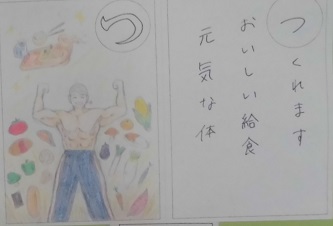 つくれます
おいしい給食
元気な体
つ